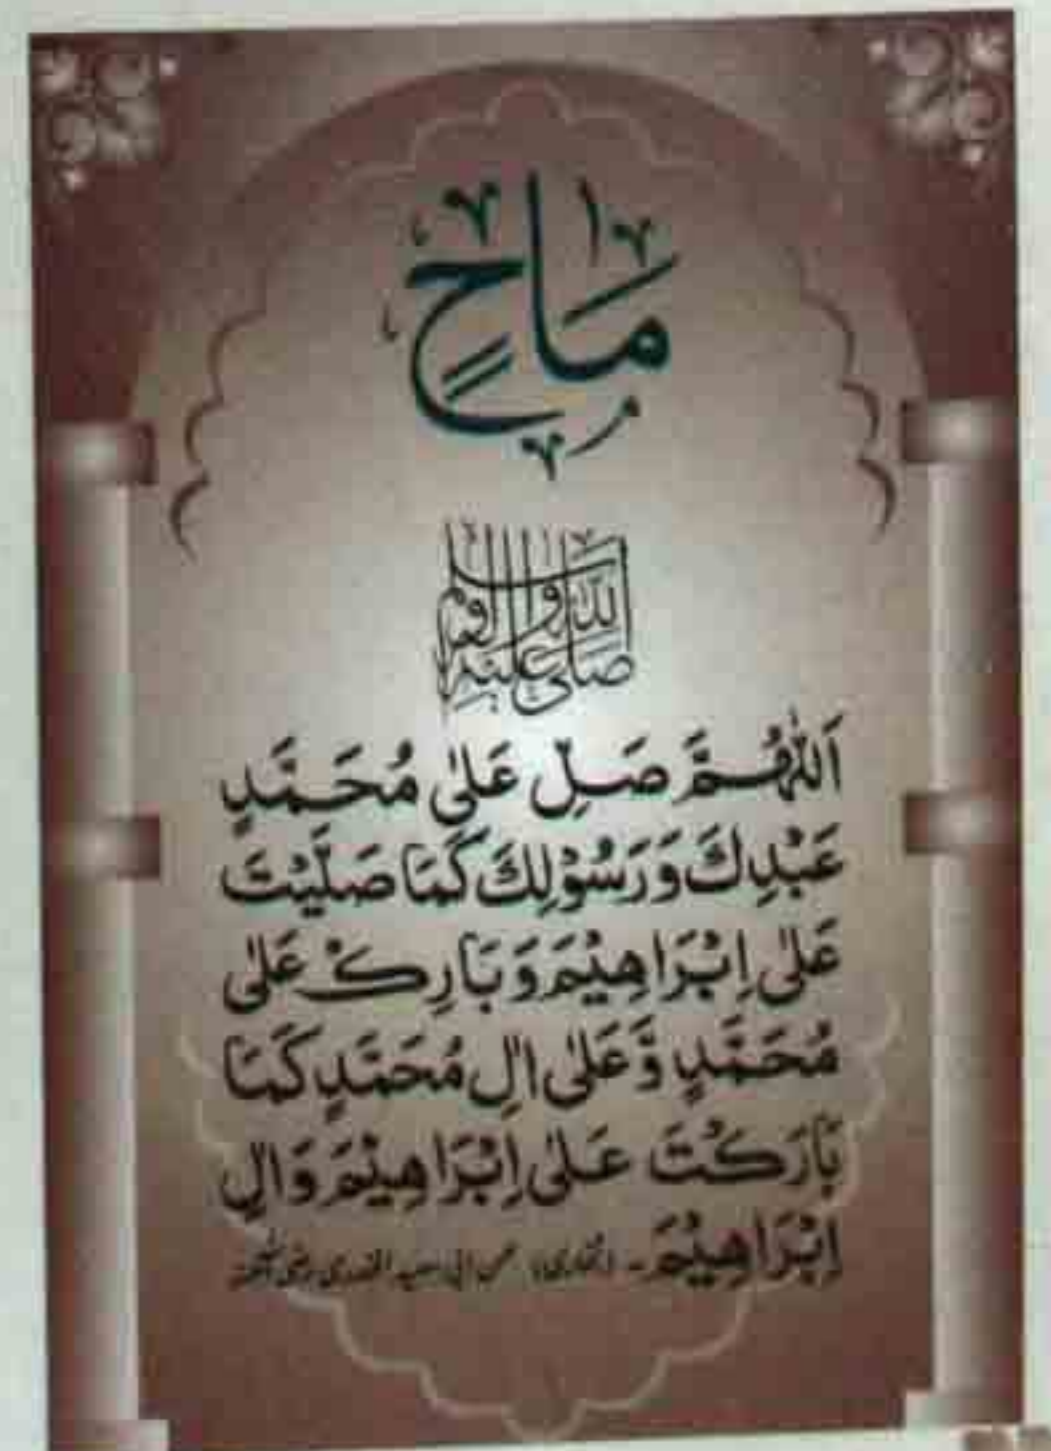 مَاحٍ
صلى الله عليه واله وسلم
اَللّٰهُمَّ صَلِّ عَلٰى مُحَمَّدٍ
عَبْدِكَ وَرَسُوْلِكَ كَمَا صَلَّيْتَ
عَلٰى اِبْرَاهِيْمَ وَبَارِكْ عَلٰى
مُحَمَّدٍ وَّعَلٰى اٰلِ مُحَمَّدٍ كَمَا
بَارَكْتَ عَلٰى اِبْرَاهِيْمَ وَاٰلِ
اِبْرَاهِيْمَ۔ (البخاری) عن ابی سعید الخدری رضی اللہ عنہ